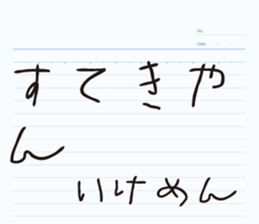 No.
Date　・　・
すてきや
ん
いけめん